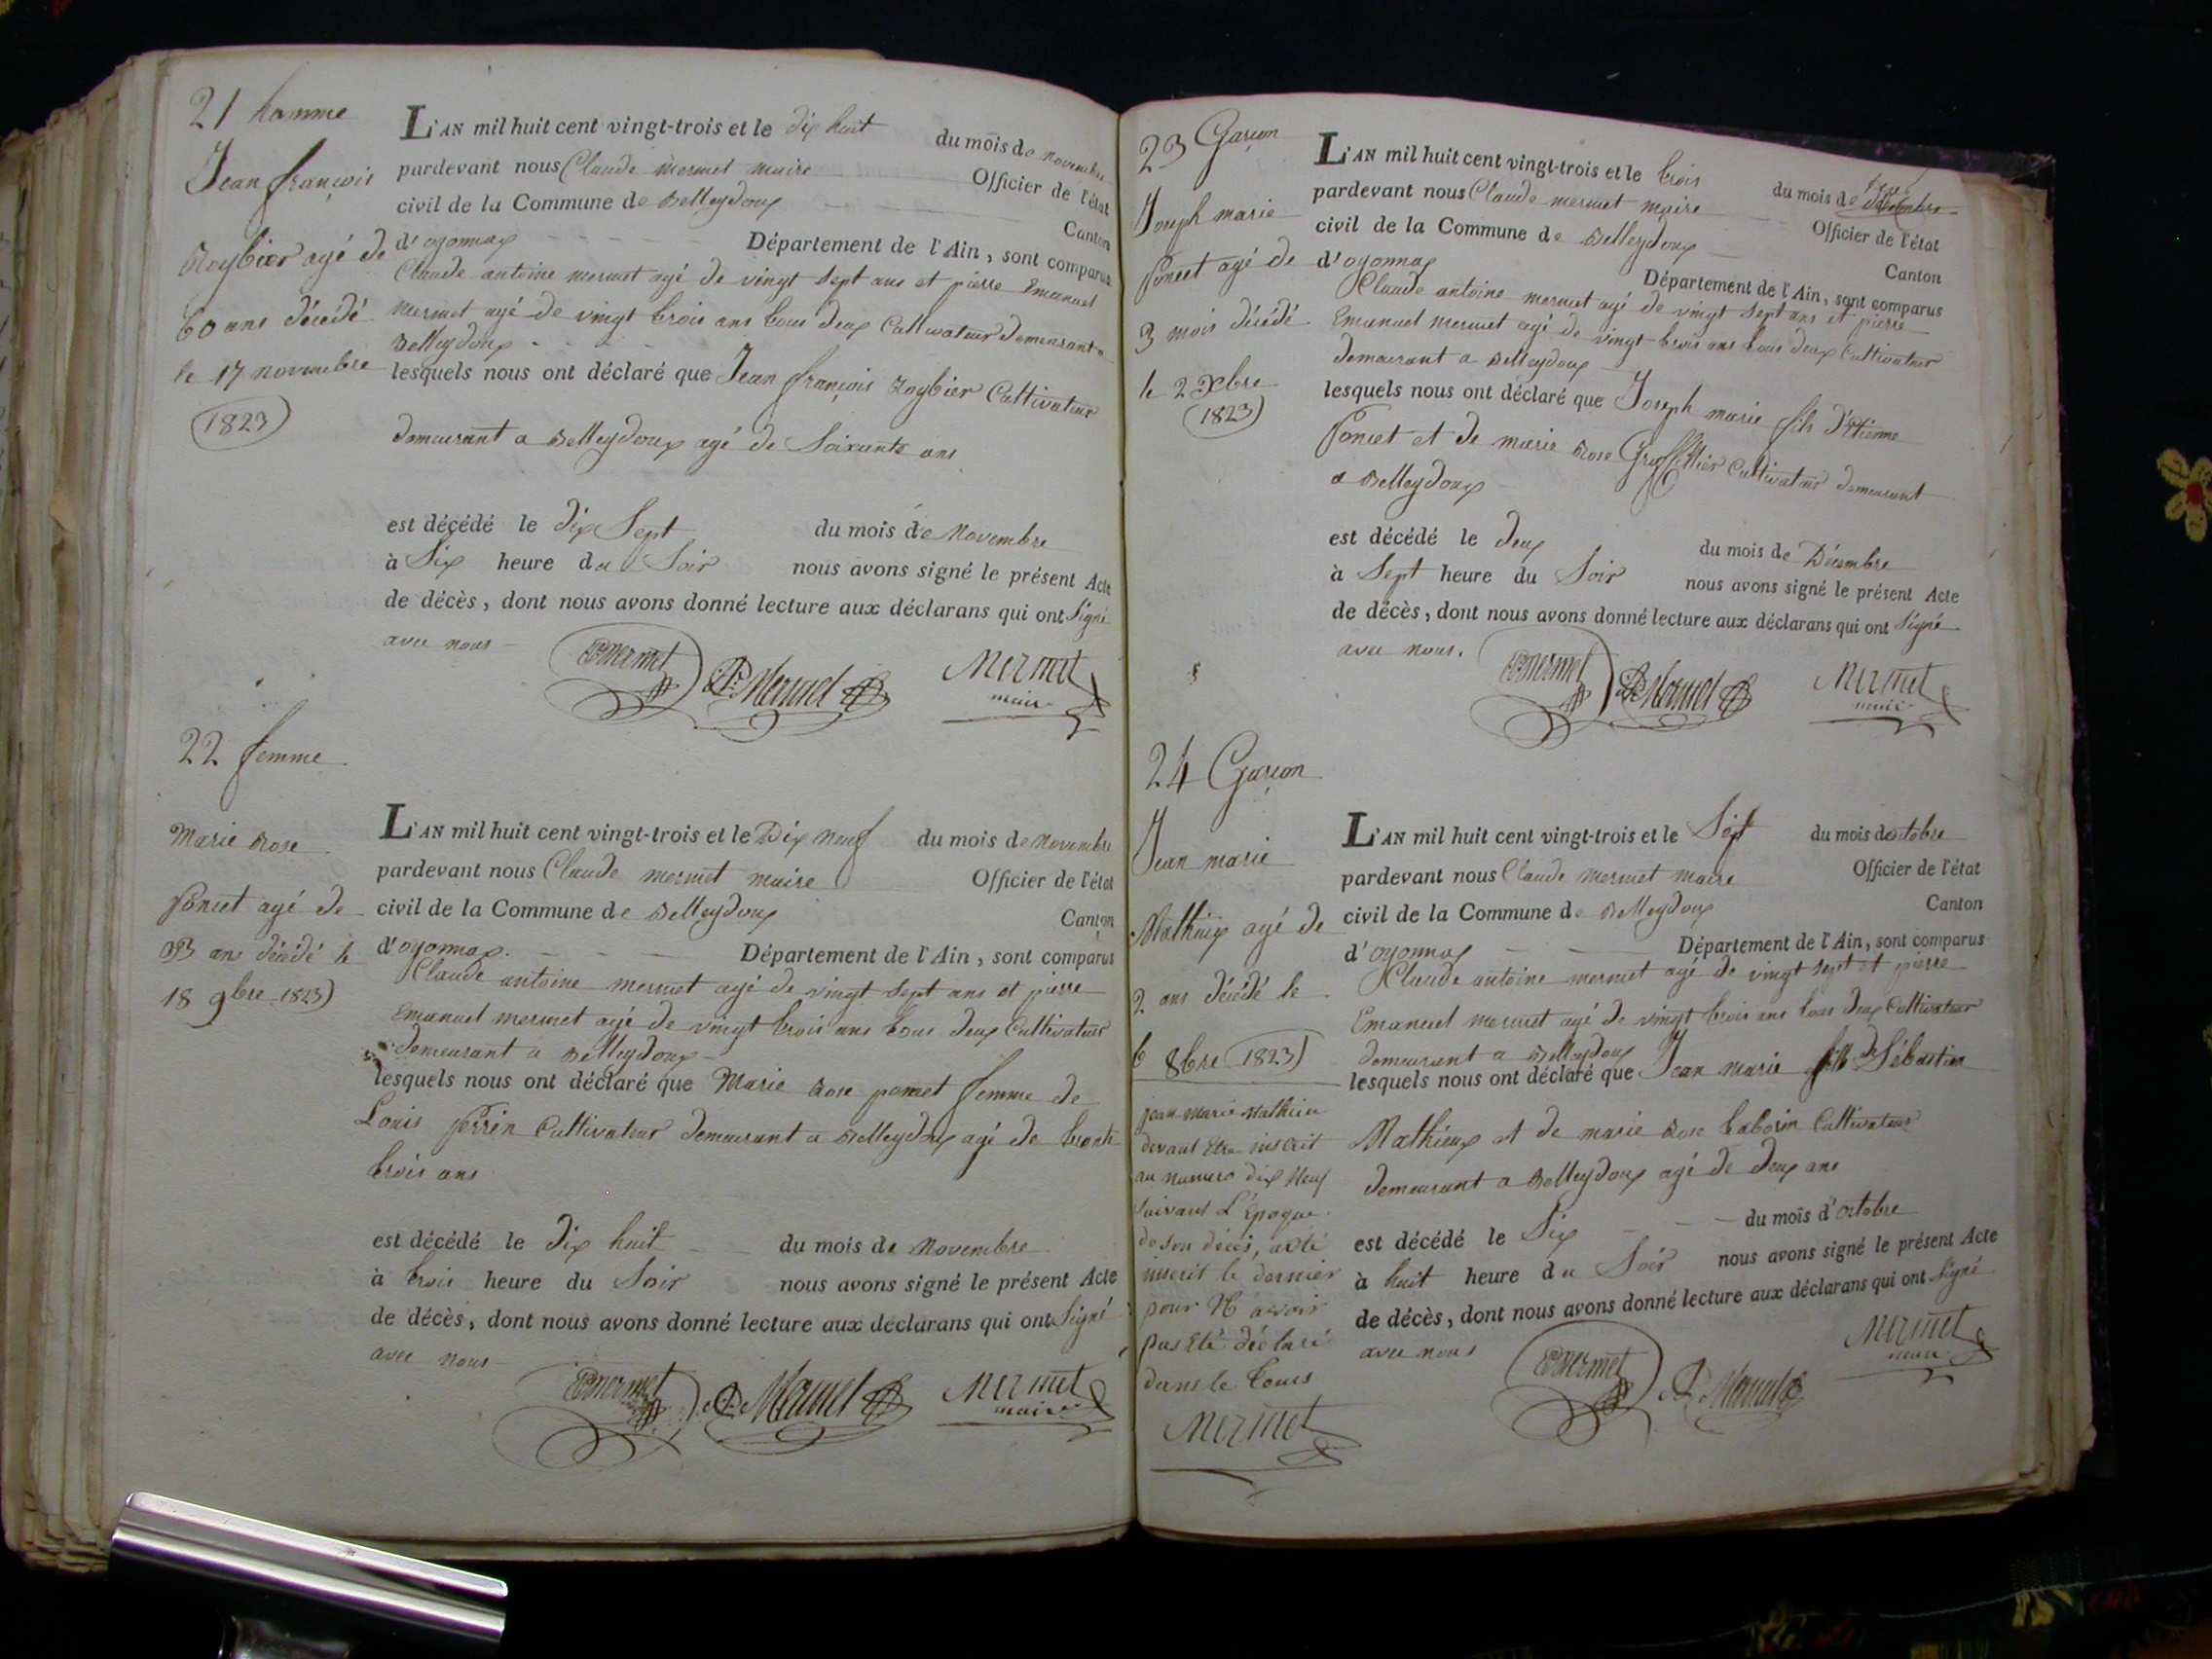 21 homme
Jean françois
Roybier agé de
60 ans décédé
le 17 novembre
1823
L'AN mil huit cent vingt-trois et le dix huit du mois de novembre
pardevant nous Claude mermet maire Officier de l'état
civil de la Commune de Belleydoux Canton
d'oyonnax Département de l'Ain, sont comparus
Claude antoine mermet agé de vingt sept ans et pierre Emanuel
mermet agé de vingt trois ans tous deux Cultivateur demeurant a
Belleydoux
lesquels nous ont déclaré que Jean françois Roybier Cultivateur
demeurant a Belleydoux agé de Soixante ans
est décédé le dix Sept du mois de Novembre
à Six heure du Soir nous avons signé le présent Acte
de décès, dont nous avons donné lecture aux déclarans qui ont Signé
avec nous
Mermet Mermet
maire
22 femme
Marie Rose
Poncet agé de
33 ans décédé le
18 9bre 1823
L'AN mil huit cent vingt-trois et le Dix neuf du mois de Novembre
pardevant nous Claude mermet maire Officier de l'état
civil de la Commune de Belleydoux Canton
d'oyonnax. Département de l'Ain, sont comparus
Claude antoine mermet agé de vingt Sept ans et pierre
Emanuel mermet agé de vingt trois ans tous deux Cultivateur
demeurant a Belleydoux
lesquels nous ont déclaré que Marie Rose poncet femme de
Louis Perrin Cultivateur demeurant a Belleydoux agé de trente
trois ans
est décédé le dix huit du mois de Novembre
à trois heure du Soir nous avons signé le présent Acte
de décès, dont nous avons donné lecture aux déclarans qui ont Signé
avec nous
Mermet Mermet
maire
23 Garçon
Joseph marie
Poncet agé de
3 mois décédé
le 2 Xbre
1823
L'AN mil huit cent vingt-trois et le trois du mois de Décembre
pardevant nous Claude mermet maire Officier de l'état
civil de la Commune de Belleydoux Canton
d'oyonnax Département de l'Ain, sont comparus
Claude antoine mermet agé de vingt Sept ans et pierre
Emanuel mermet agé de vingt trois ans tous deux Cultivateur
demeurant a Belleydoux
lesquels nous ont déclaré que Joseph marie fils d'Etienne
Poncet et de marie Rose Cultivateur demeurant
a Belleydoux
est décédé le deux du mois de Décembre
à Sept heure du Soir nous avons signé le présent Acte
de décès, dont nous avons donné lecture aux déclarans qui ont Signé
avec nous.
Mermet Mermet
maire
24 Garçon
Jean marie
Mathieux agé de
2 ans décédé le
6 8bre 1823
jean marie Mathieu
devant Etre inscrit
au numero dix Neuf
suivant L'Epoque
de son décès, a été
inscrit le dernier
pour N'avoir
pas Eté déclaré
dans le Cours
Mermet
L'AN mil huit cent vingt-trois et le Sept du mois d'octobre
pardevant nous Claude mermet maire Officier de l'état
civil de la Commune de Belleydoux Canton
d'oyonnax Département de l'Ain, sont comparus
Claude antoine mermet agé de vingt sept et pierre
Emanuel mermet agé de vingt trois ans tous deux Cultivateur
demeurant a Belleydoux
lesquels nous ont déclaré que Jean marie fils de Sébastien
Mathieux et de marie Rose Cultivateur
demeurant a Belleydoux agé de deux ans
est décédé le Six du mois d'octobre
à huit heure du Soir nous avons signé le présent Acte
de décès, dont nous avons donné lecture aux déclarans qui ont Signé
avec nous
Mermet Mermet
maire